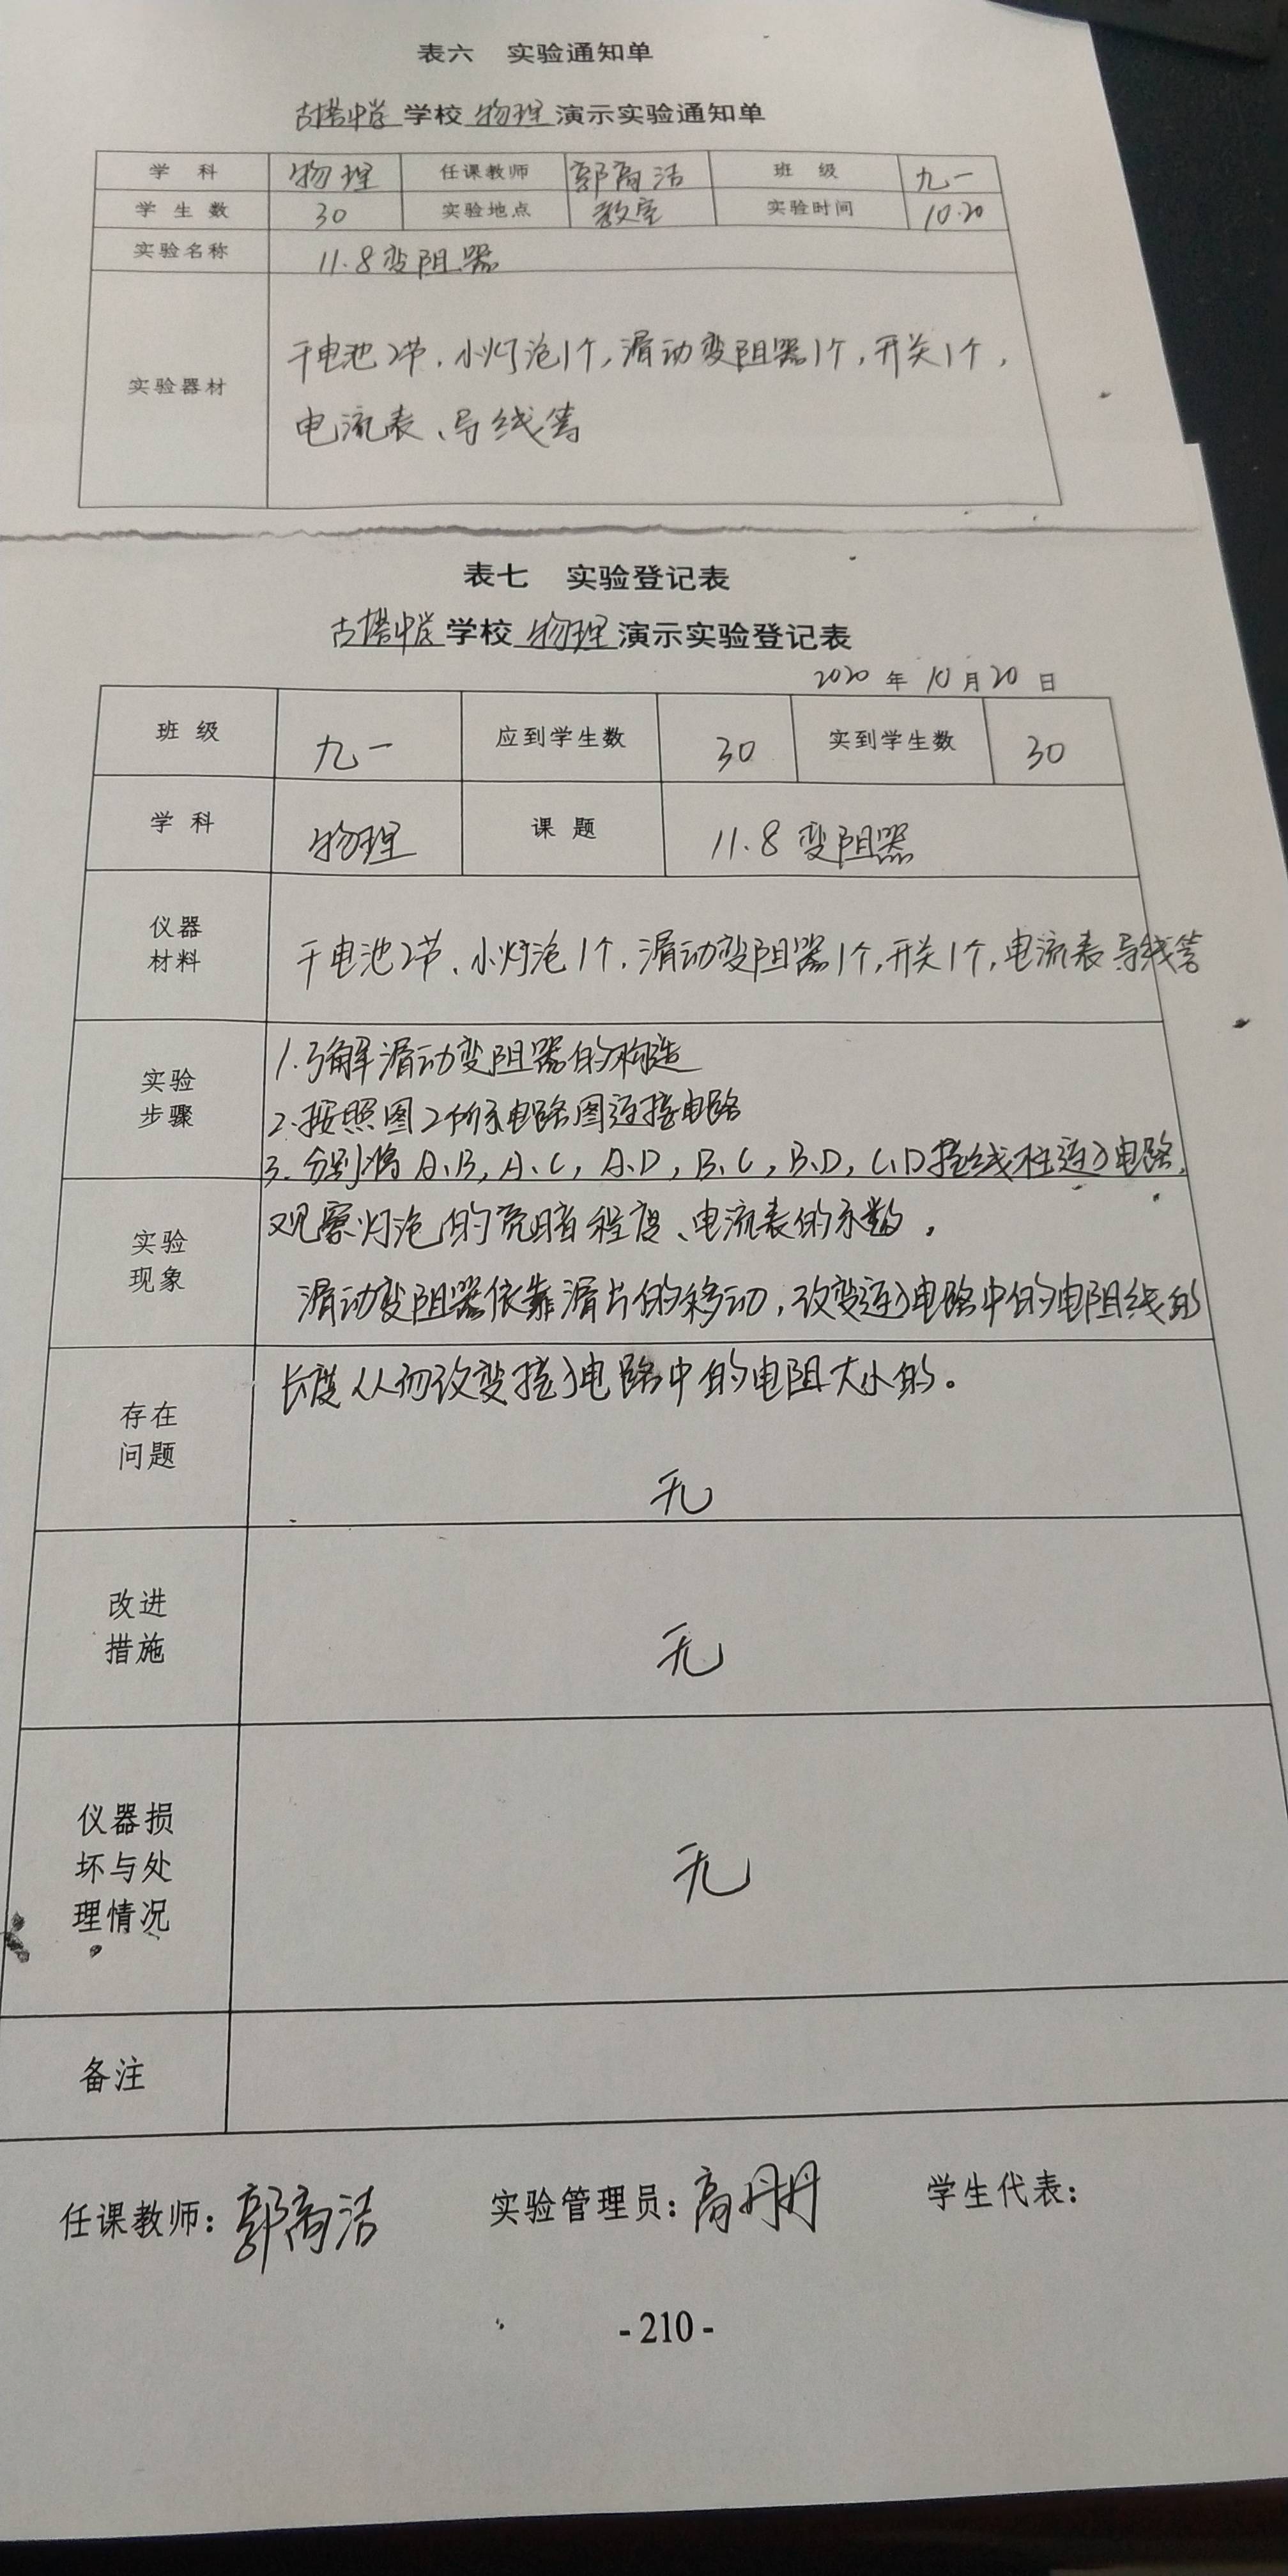 表六 实验通知单
古塔中学学校物理演示实验通知单
学科 物理 任课教师 郭商洁 班级 九一
学生数 30 实验地点 教室 实验时间 10.20
实验名称 11.8变阻器
实验器材
干电池2节、小灯泡1个,滑动变阻器1个,开关1个,
电流表、导线等
表七 实验登记表
古塔中学学校物理演示实验登记表
2020年10月20日
班级 九一 应到学生数 30 实到学生数 30
学科 物理 课题 11.8变阻器
仪器
材料
干电池2节、小灯泡1个、滑动变阻器1个,开关1个,电流表导线等
实验
步骤
1.了解滑动变阻器的构造
2.按照图2所示电路图连接电路
3.分别将A、B,A、C,A、D,B、C,B、D,C、D接线柱连入电路,
实验
现象
观察灯泡的亮暗程度、电流表的示数。
滑动变阻器依靠滑片的移动,改变连入电路中的电阻线的
存在
问题
长度从而改变接入电路中的电阻大小的。
无
改进
措施
无
仪器损
坏与处
理情况
无
备注
任课教师:郭商洁 实验管理员:高丹丹 学生代表:
-210-